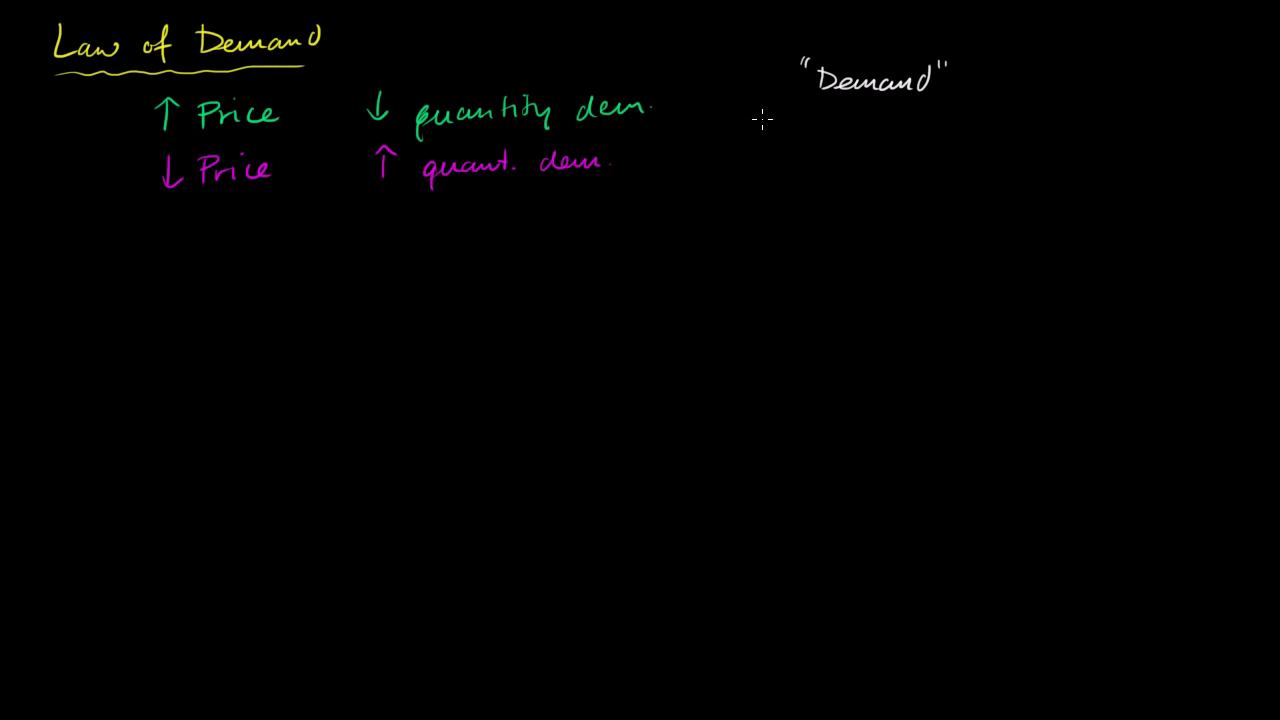 Law of Demand
↑ Price ↓ quantity dem.
↓ Price ↑ quant. dem.
"Demand"